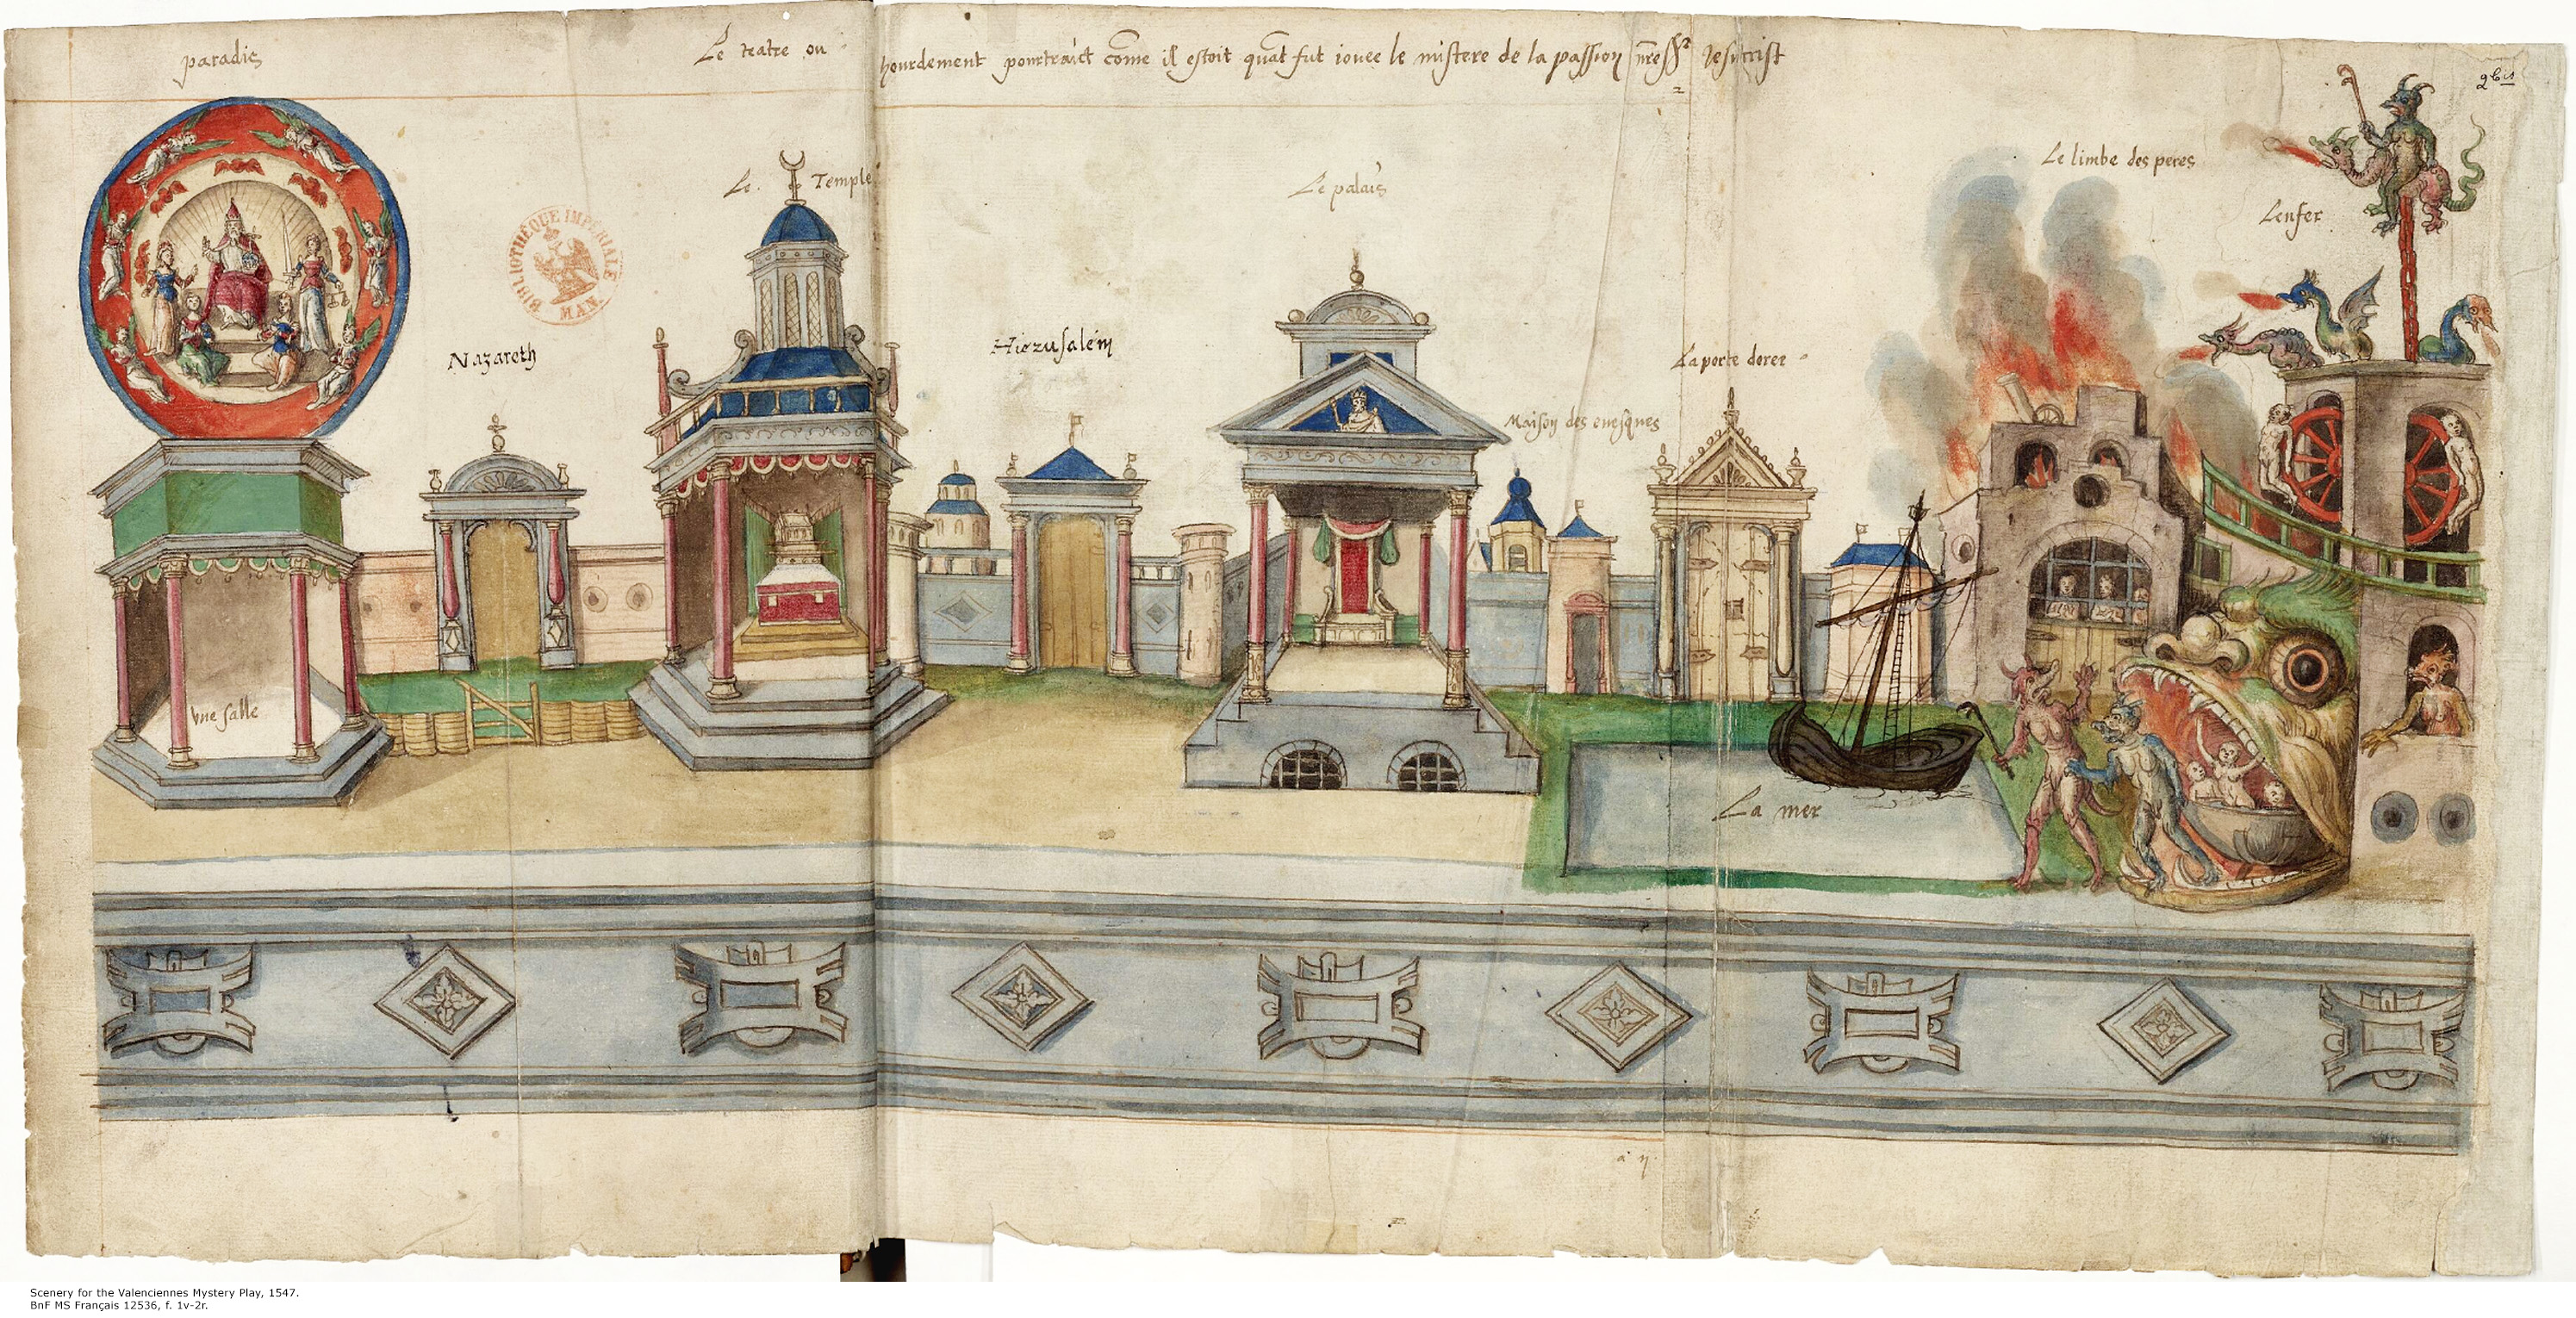 paradis
Le teatre ou hourdement pourtraict come il estoit quat fut iouee le mistere de la passion nre Jesucrist
2
2 bis
Le limbe des peres
Le Temple
Le palais
Lenfer
BIBLIOTHÈQUE IMPÉRIALE
MAN.
Nazareth
Hierusalem
La porte doree
Maison des euesques
Vne salle
La mer
Scenery for the Valenciennes Mystery Play, 1547.
BnF MS Français 12536, f. 1v-2r.